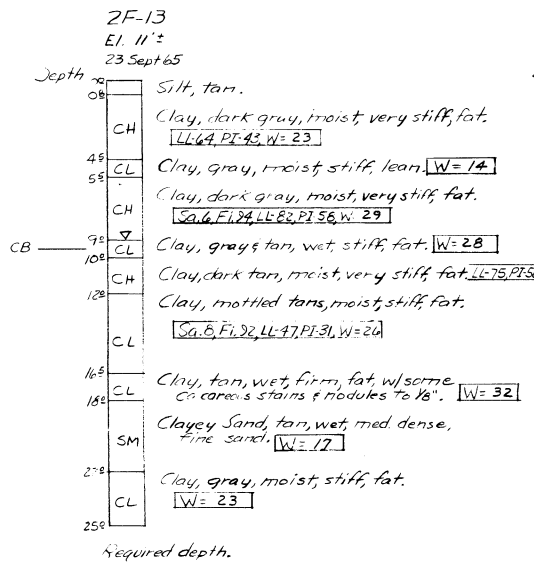 2F-13
El. 11'±
23 Sept 65
Depth
Silt, tan.
CH
Clay, dark gray, moist, very stiff, fat.
LL-64, PI-43, W=23
CL
Clay, gray, moist, stiff, lean. W=14
CH
Clay, dark gray, moist, very stiff, fat.
Sa.6, Fi.94, LL-82, PI-56, W=29
CB
CL
Clay, gray & tan, wet, stiff, fat. W=28
CH
Clay, dark tan, moist, very stiff, fat. LL-75, PI-5
Clay, mottled tans, moist, stiff, fat.
CL
Sa.8, Fi.92, LL-47, PI-31, W=26
CL
Clay, tan, wet, firm, fat, w/some
ca careous stains & nodules to 1/8". W=32
SM
Clayey Sand, tan, wet, med. dense,
fine sand. W=17
CL
Clay, gray, moist, stiff, fat.
W=23
25⁰
Required depth.